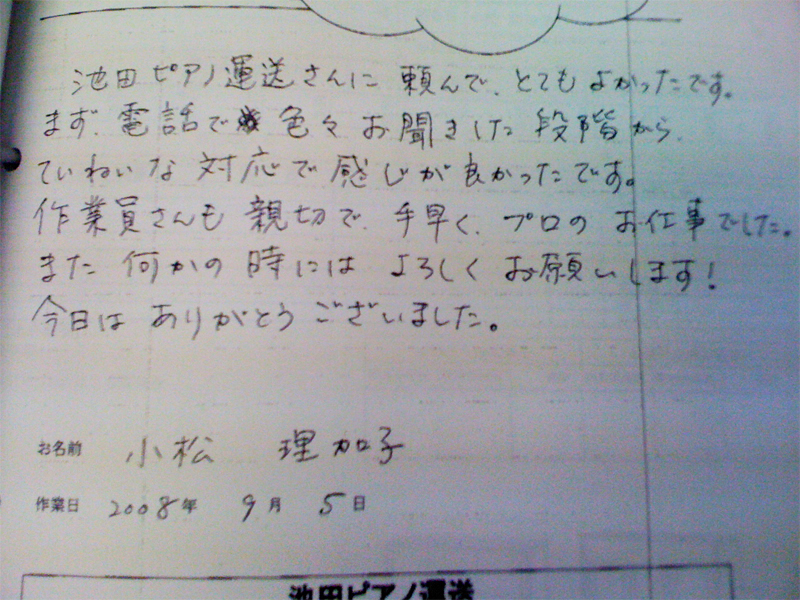 池田ピアノ運送さんに 頼んで、とてもよかったです。
まず、電話で 色々お聞きした段階から、
ていねいな対応で感じが良かったです。
作業員さんも親切で、手早く、プロのお仕事でした。
また何かの時には よろしくお願いします!
今日は ありがとうございました。
お名前 小松 理加子
作業日 2008年 9月 5日
池田ピアノ運送